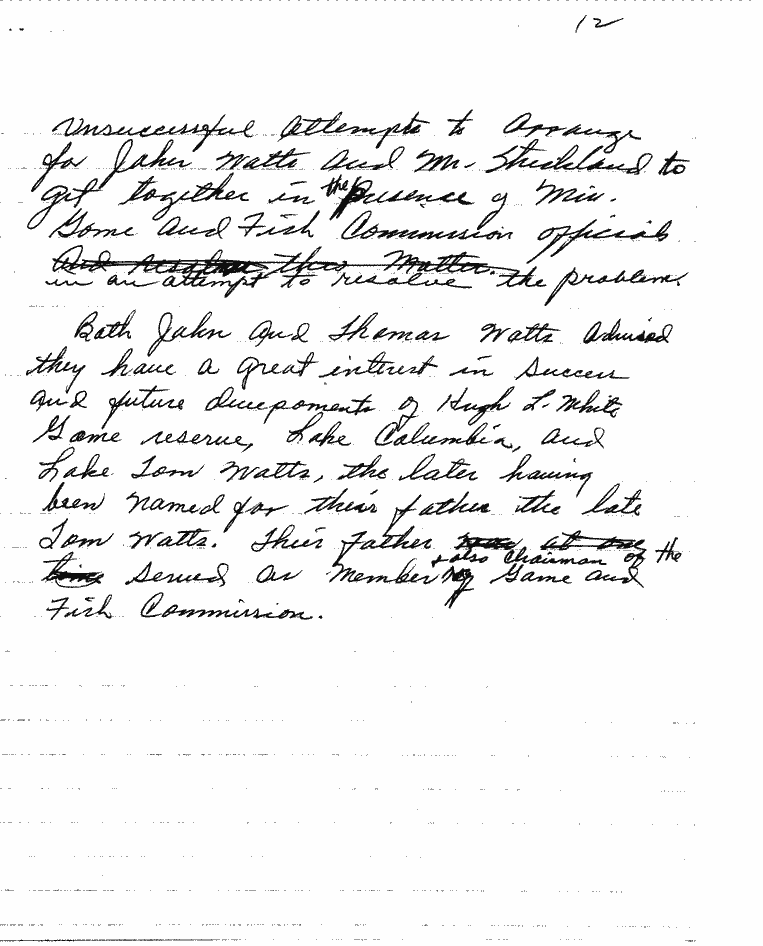 12
Unsuccessful attempts to arrange
for John Watts and Mr. Strickland to
get together in the presence of Miss.
Game and Fish Commission officials
and resolve this matter.
in an attempt to resolve the problem.
Both John and Thomas Watts advised
they have a great interest in success
and future of Hugh L. White
Game reserve, Lake Columbia, and
Lake Tom Watts, the later having
been named for their father the late
Tom Watts. Their father was at one
+ also Chairman of the
time served as member of Game and
Fish Commission.